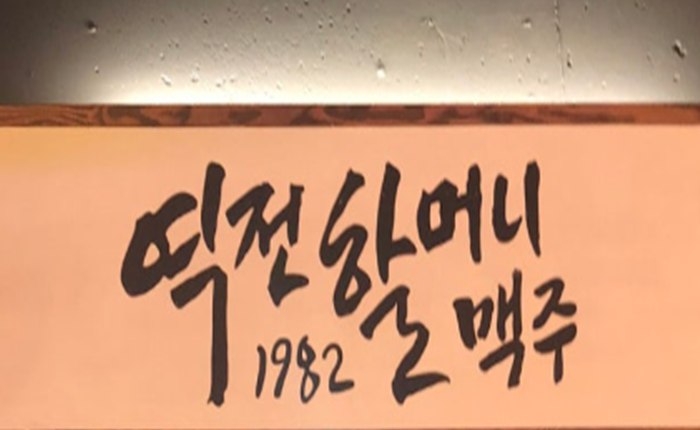 역전할머니
1982 맥주